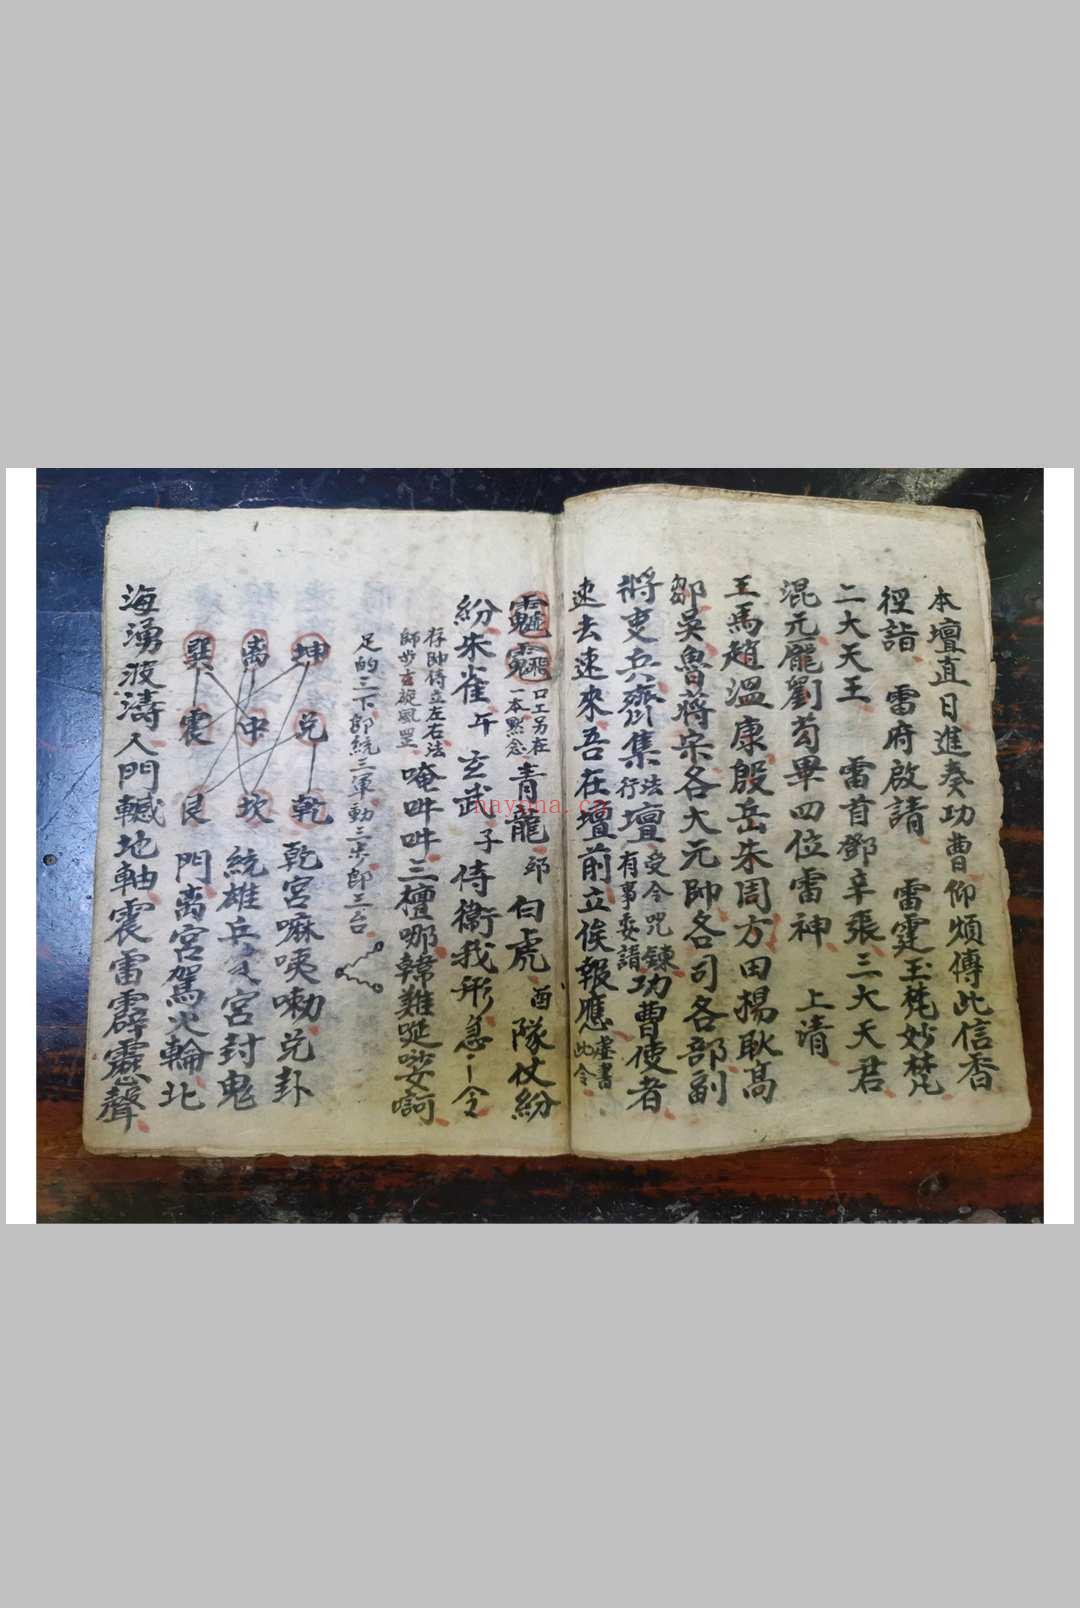 本壇直日進奏功曹仰煩傳此信香
徑詣 雷府啟請 雷霆玉梵妙梵
二大天王 雷首鄧辛張三大天君
混元龐劉苟畢四位雷神 上清
王馬趙溫康殷岳朱周方田楊耿高
鄒吳魯蔣宋各大元帥各司各部副
將吏兵齊集法行壇受令咒鍊有事委請功曹使者
速去速來吾在壇前立俟報應虛書此令
口工另在一本默念青龍 白虎酉隊仗紛
紛朱雀午玄武子侍衛我形急令
存帥侍立左右法師步玄旋風罡
唵吽吽三檀哪
足的三下
統三軍動三步
坤 兌 乾
离 中 坎
巽 震 艮
乾宮嘛咦嘞兌卦
統雄兵 宮封鬼
門离宮駕火輪北
海湧波濤入門轗地軸震雷霹靂聲
nayona.cn